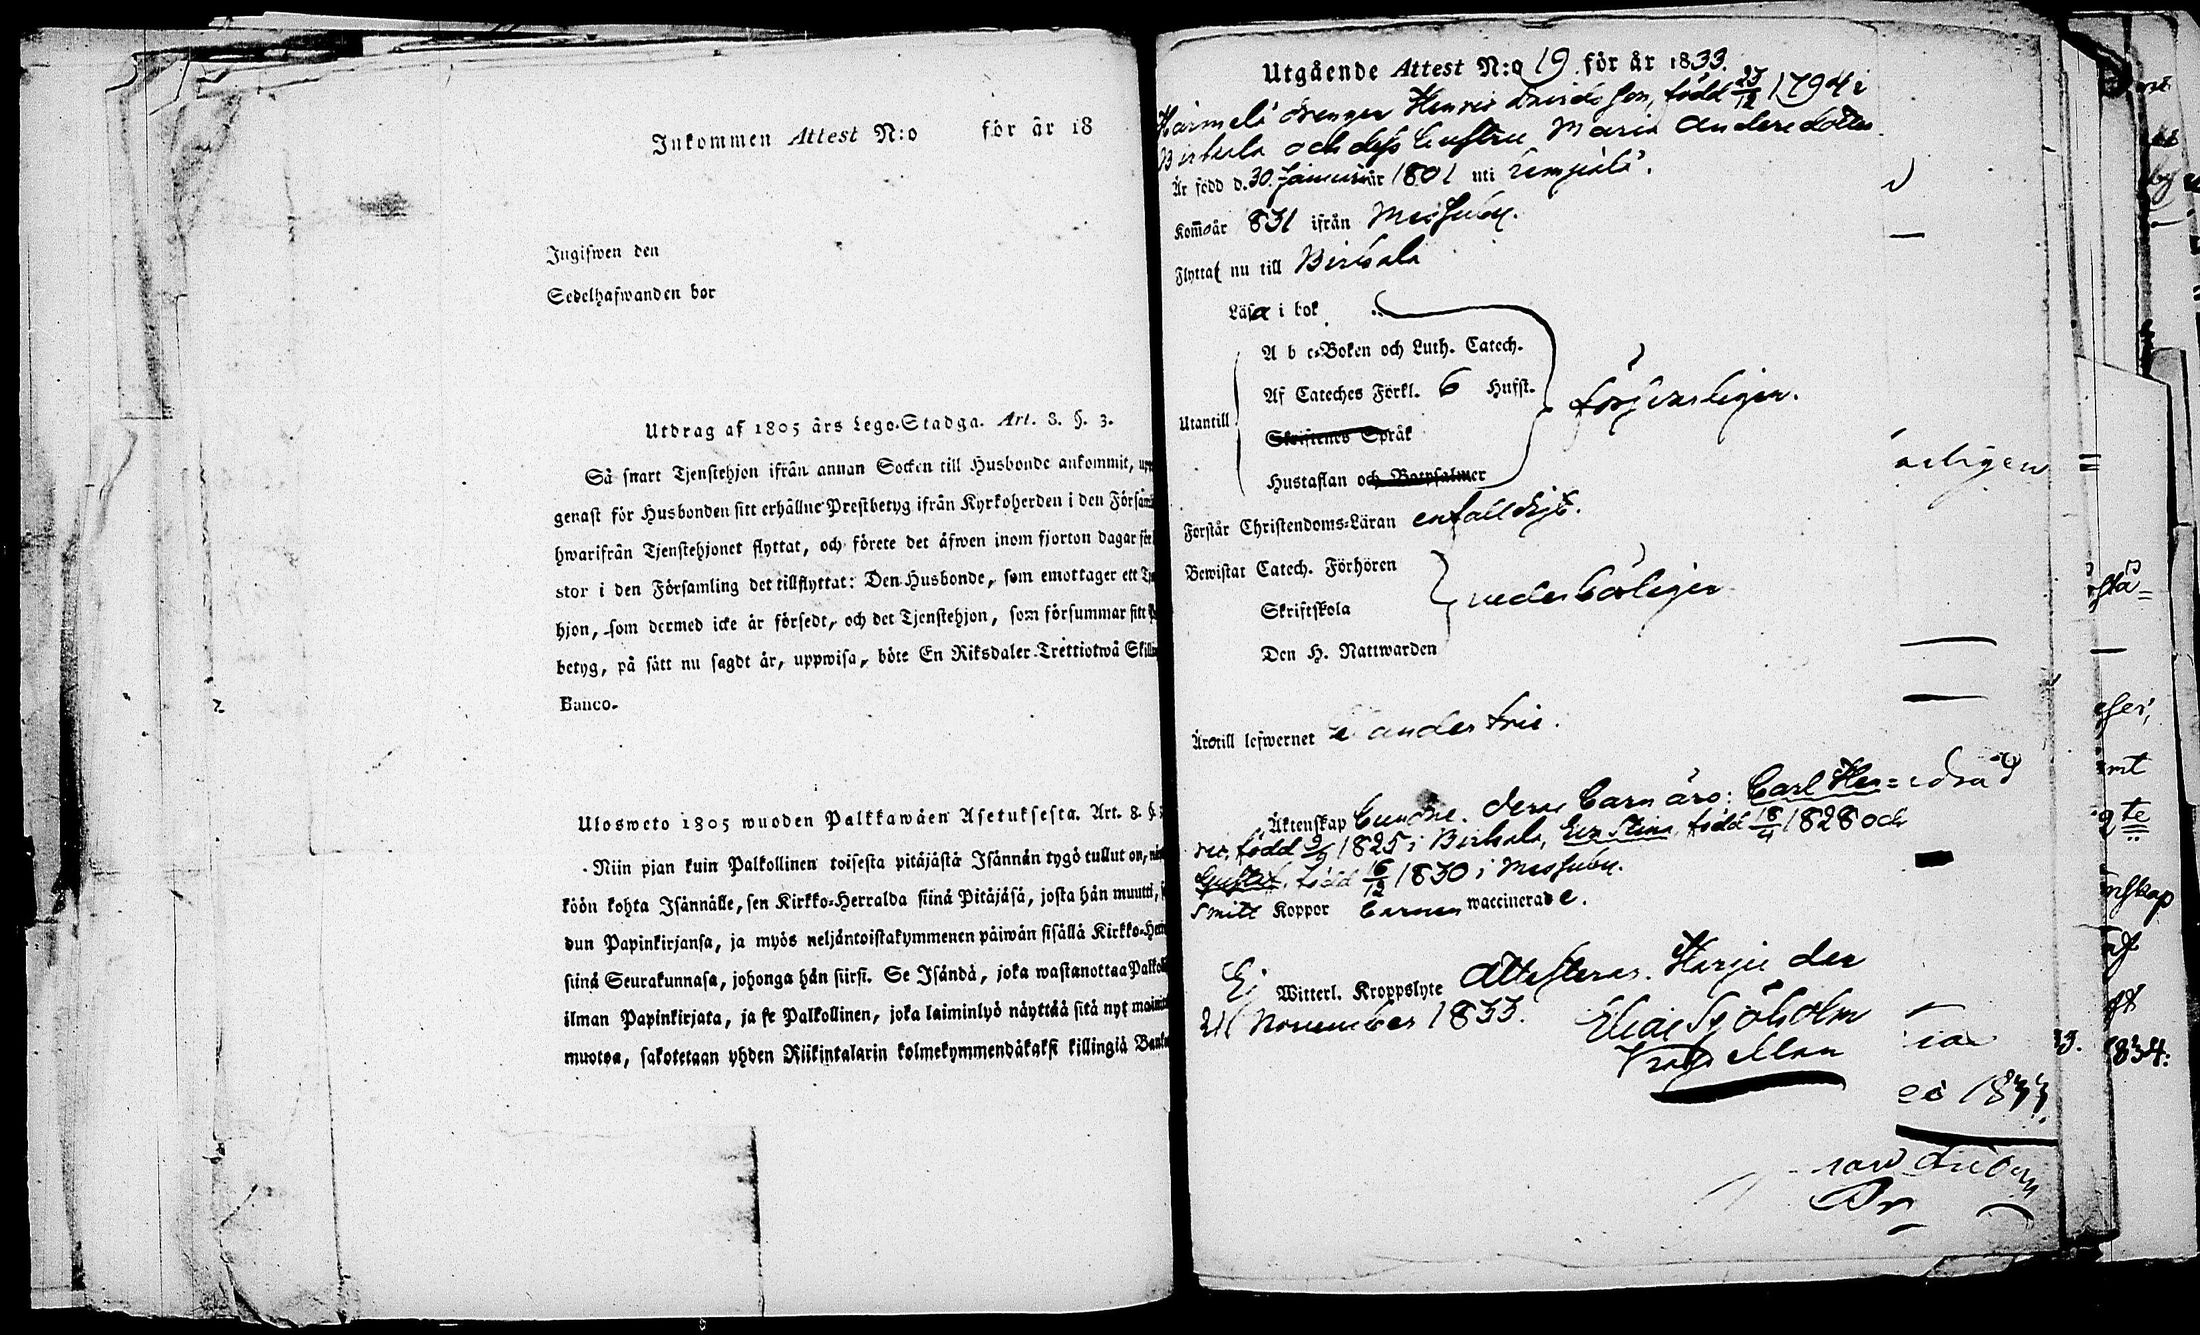 Inkommen Attest N:o för år 18
Ingifwen den
Sedelhafwanden bor
Utdrag af 1805 års Lego-Stadga. Art. 8. §. 3.
Så snart Tjenstehjon ifrån annan Socken till Husbonde ankommit, upp
genast för Husbonden sitt erhållne Prestbetyg ifrån Kyrkoherden i den Församl
hwarifrån Tjenstehjonet flyttat, och förete det äfwen inom fjorton dagar för
stor i den Församling det tillflyttat: Den Husbonde, som emottager ett Tje
hjon, som dermed icke är försedt, och det Tjenstehjon, som försummar sitt P
betyg, på sätt nu sagdt är, uppwisa, böte En Riksdaler Trettiotwå Skillin
Banco.
Ulosweto 1805 wuoden Palkkawäen Asetuksesta. Art. 8. §. 3
Niin pian kuin Palkollinen toisesta pitäjästä Isännän tygö tullut on, nä
köön kohta Isännälle, sen Kirkko-Herralda siinä Pitäjäsä, josta hän muutti, s
dun Papinkirjansa, ja myös neljäntoistakymmenen päiwän sisällä Kirkko-Her
siinä Seurakunnasa, johonga hän siirsi. Se Isändä, joka wastanottaa Palkol
ilman Papinkirjata, ja se Palkollinen, joka laiminlyö näyttää sitä nyt mainit
muotoa, sakotetaan yhden Riikintalarin kolmekymmendäkaksi killingiä Banko
Utgående Attest N:o 19. för år 1833.
Härmelä drenger Henric Davidsson, född 23/12 1794 i
Birkala och dess hustru Maria Andersdotter
Är född d. 30. Januari år 1801 uti Lempiälä.
Kom år 831 ifrån Messuby.
Flyttat nu till Birkala
Läsa i bok
A b c-Boken och Luth. Catech.
Af Cateches Förkl. 6 Hufst.
Utantill
försvarligen.
Skriftenes Språk
Hustaflan och Botpsalmer
Förstår Christendoms-Läran enfaldigt.
Bewistat Catech. Förhören
Skriftskola
vederbörligen
Den H. Nattwarden
Äro till lefwernet klanderfrie.
Äktenskap bundne. Deras barn äro: Carl Hen=
ric, född 9/9 1825 i Birkala, Eva Stina, född 18/4 1828 och
Gustaf, född 16/12 1830 i Messuby.
Smitt Koppor barnen waccinerade.
Ej Witterl. Kroppslyte Attesteras. Harju den
21 November 1833. Elias Sjöholm
Kapellan
arligen
1833.
1834: